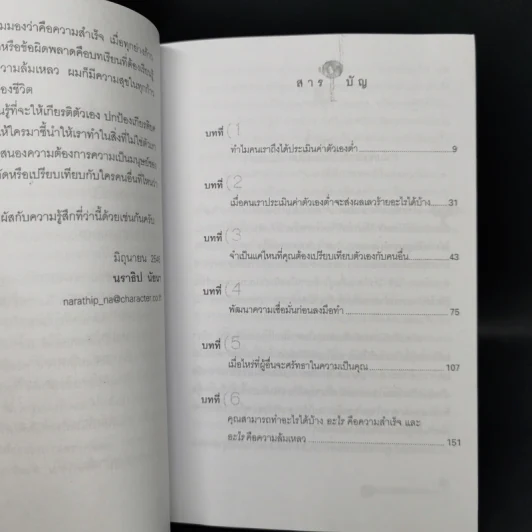 มมองว่าคือความสำเร็จ เมื่อทุกย่างก้าว
หรือข้อผิดพลาดคือบทเรียนที่ต้องเรียนรู้
วามล้มเหลว ผมก็มีความสุขในทุกก้าว
องชีวิต
นรู้ที่จะให้เกียรติตัวเอง ปกป้องเกียรติยศ
ห้ใครมาชี้นำให้เราทำในสิ่งที่ไม่ใช่ตัวเรา
สนองความต้องการความเป็นมนุษย์ของ
ัดหรือเปรียบเทียบกับใครคนอื่นที่ไหน
ผัสกับความรู้สึกที่ว่านี้ด้วยเช่นกันครับ
มิถุนายน 254
นราธิป นัยนา
narathip_na@character.co.th
สารบัญ
บทที่ (1
ทำไมคนเราถึงได้ประเมินค่าตัวเองต่ำ 9
บทที่ (2
เมื่อคนเราประเมินค่าตัวเองต่ำจะส่งผลเลวร้ายอะไรได้บ้าง 31
บทที่ (3
จำเป็นแค่ไหนที่คุณต้องเปรียบเทียบตัวเองกับคนอื่น 43
บทที่ (4
พัฒนาความเชื่อมั่นก่อนลงมือทำ 75
บทที่ (5
เมื่อไหร่ที่ผู้อื่นจะศรัทธาในความเป็นคุณ 107
บทที่ (6
คุณสามารถทำอะไรได้บ้าง อะไร คือความสำเร็จ และ
อะไร คือความล้มเหลว 151